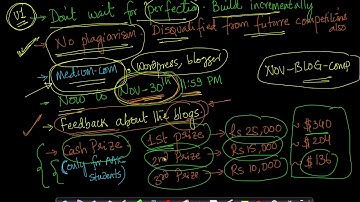 V1 - Don't wait for perfection. Build incrementally
→ No plagiarism Disqualified from future competitions also
→ Medium.com, Wordpress, blogger
→ Now to Nov-30th 11:59 PM
NOV-BLOG-Comp
→ Feedback about the blogs:
→ Cash Prize 1st prize → Rs 25,000 ~ $340
(only for students) 2nd Prize → Rs 15,000 ~ $204
3rd Prize → Rs 10,000 ~ $136